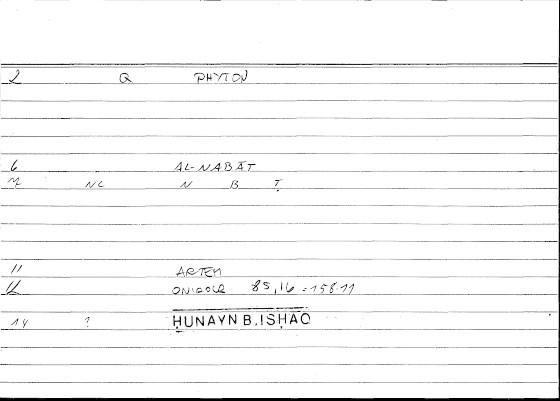 2 Q PHYTON
6 AL-NABĀT
NC N B Ṭ
11 ARTEM
12 ONIROCR 85,16 = 158.11
14 ? ḤUNAYN B. ISḤAQ